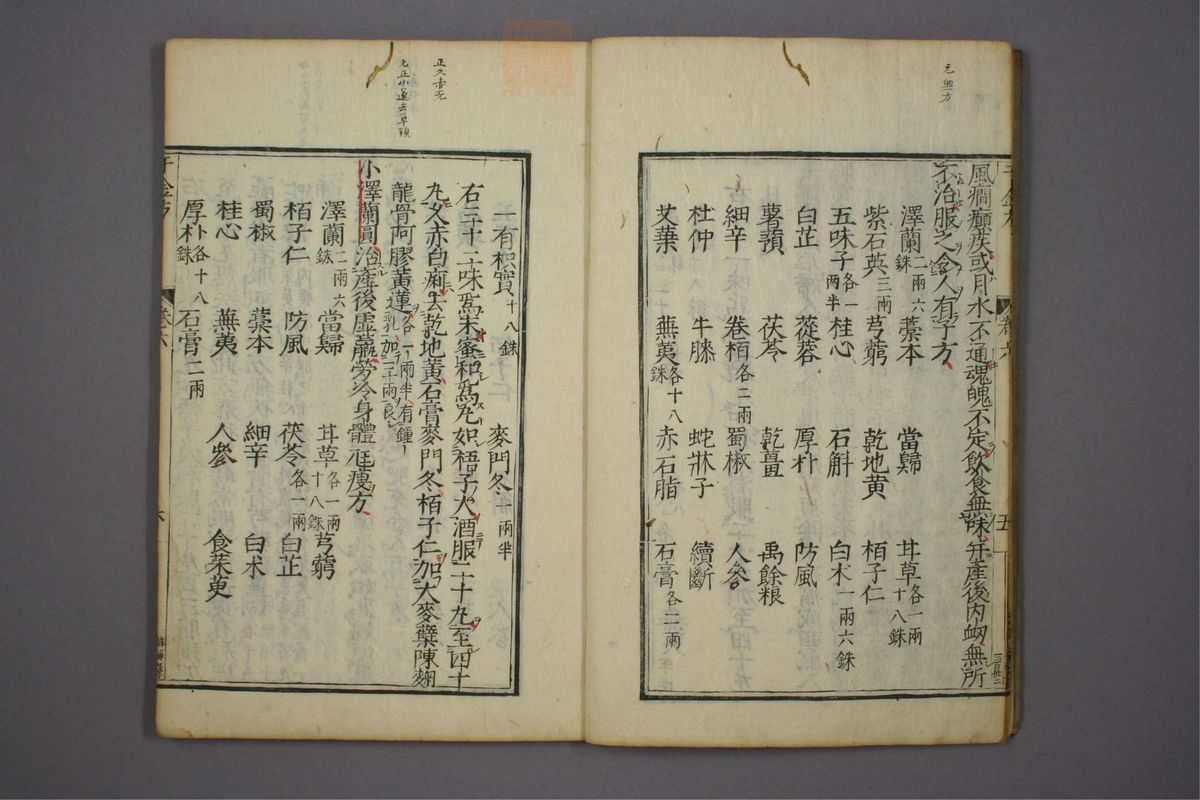 元無方
風癇癲疾或月水不通魂魄不定飲食無味并產後內衂無所
不治服之令人有子方
澤蘭二兩六銖 藁本 當歸 甘草各一兩十八銖
紫石英三兩 芎藭 乾地黄 栢子仁
五味子各一兩半 桂心 石斛 白术一兩六銖
白芷 蓯蓉 厚朴 防風
薯蕷 茯苓 乾薑 禹餘粮
細辛 卷栢各二兩 蜀椒 人參
杜仲 牛膝 蛇牀子 續斷
艾葉 蕪荑各十八銖 赤石脂 石膏各二兩
卷六
五
正文赤无
一有枳實十八銖 麥門冬一兩半
右三十二味爲末蜜和爲丸如梧子大酒服二十丸至四十
丸久赤白痢去乾地黄石膏麥門冬栢子仁加大麥櫱陳麴
龍骨阿膠黄連各一兩半有鍾乳加三兩良
小澤蘭圓治產後虛羸勞冷身體尫瘦方
澤蘭二兩六銖 當歸 甘草各一兩十八銖 芎藭
栢子仁 防風 茯苓各一兩 白芷
蜀椒 藁本 細辛 白术
桂心 蕪荑 人參 食茱萸
厚朴各十八銖 石膏二兩
千金方
卷六
六